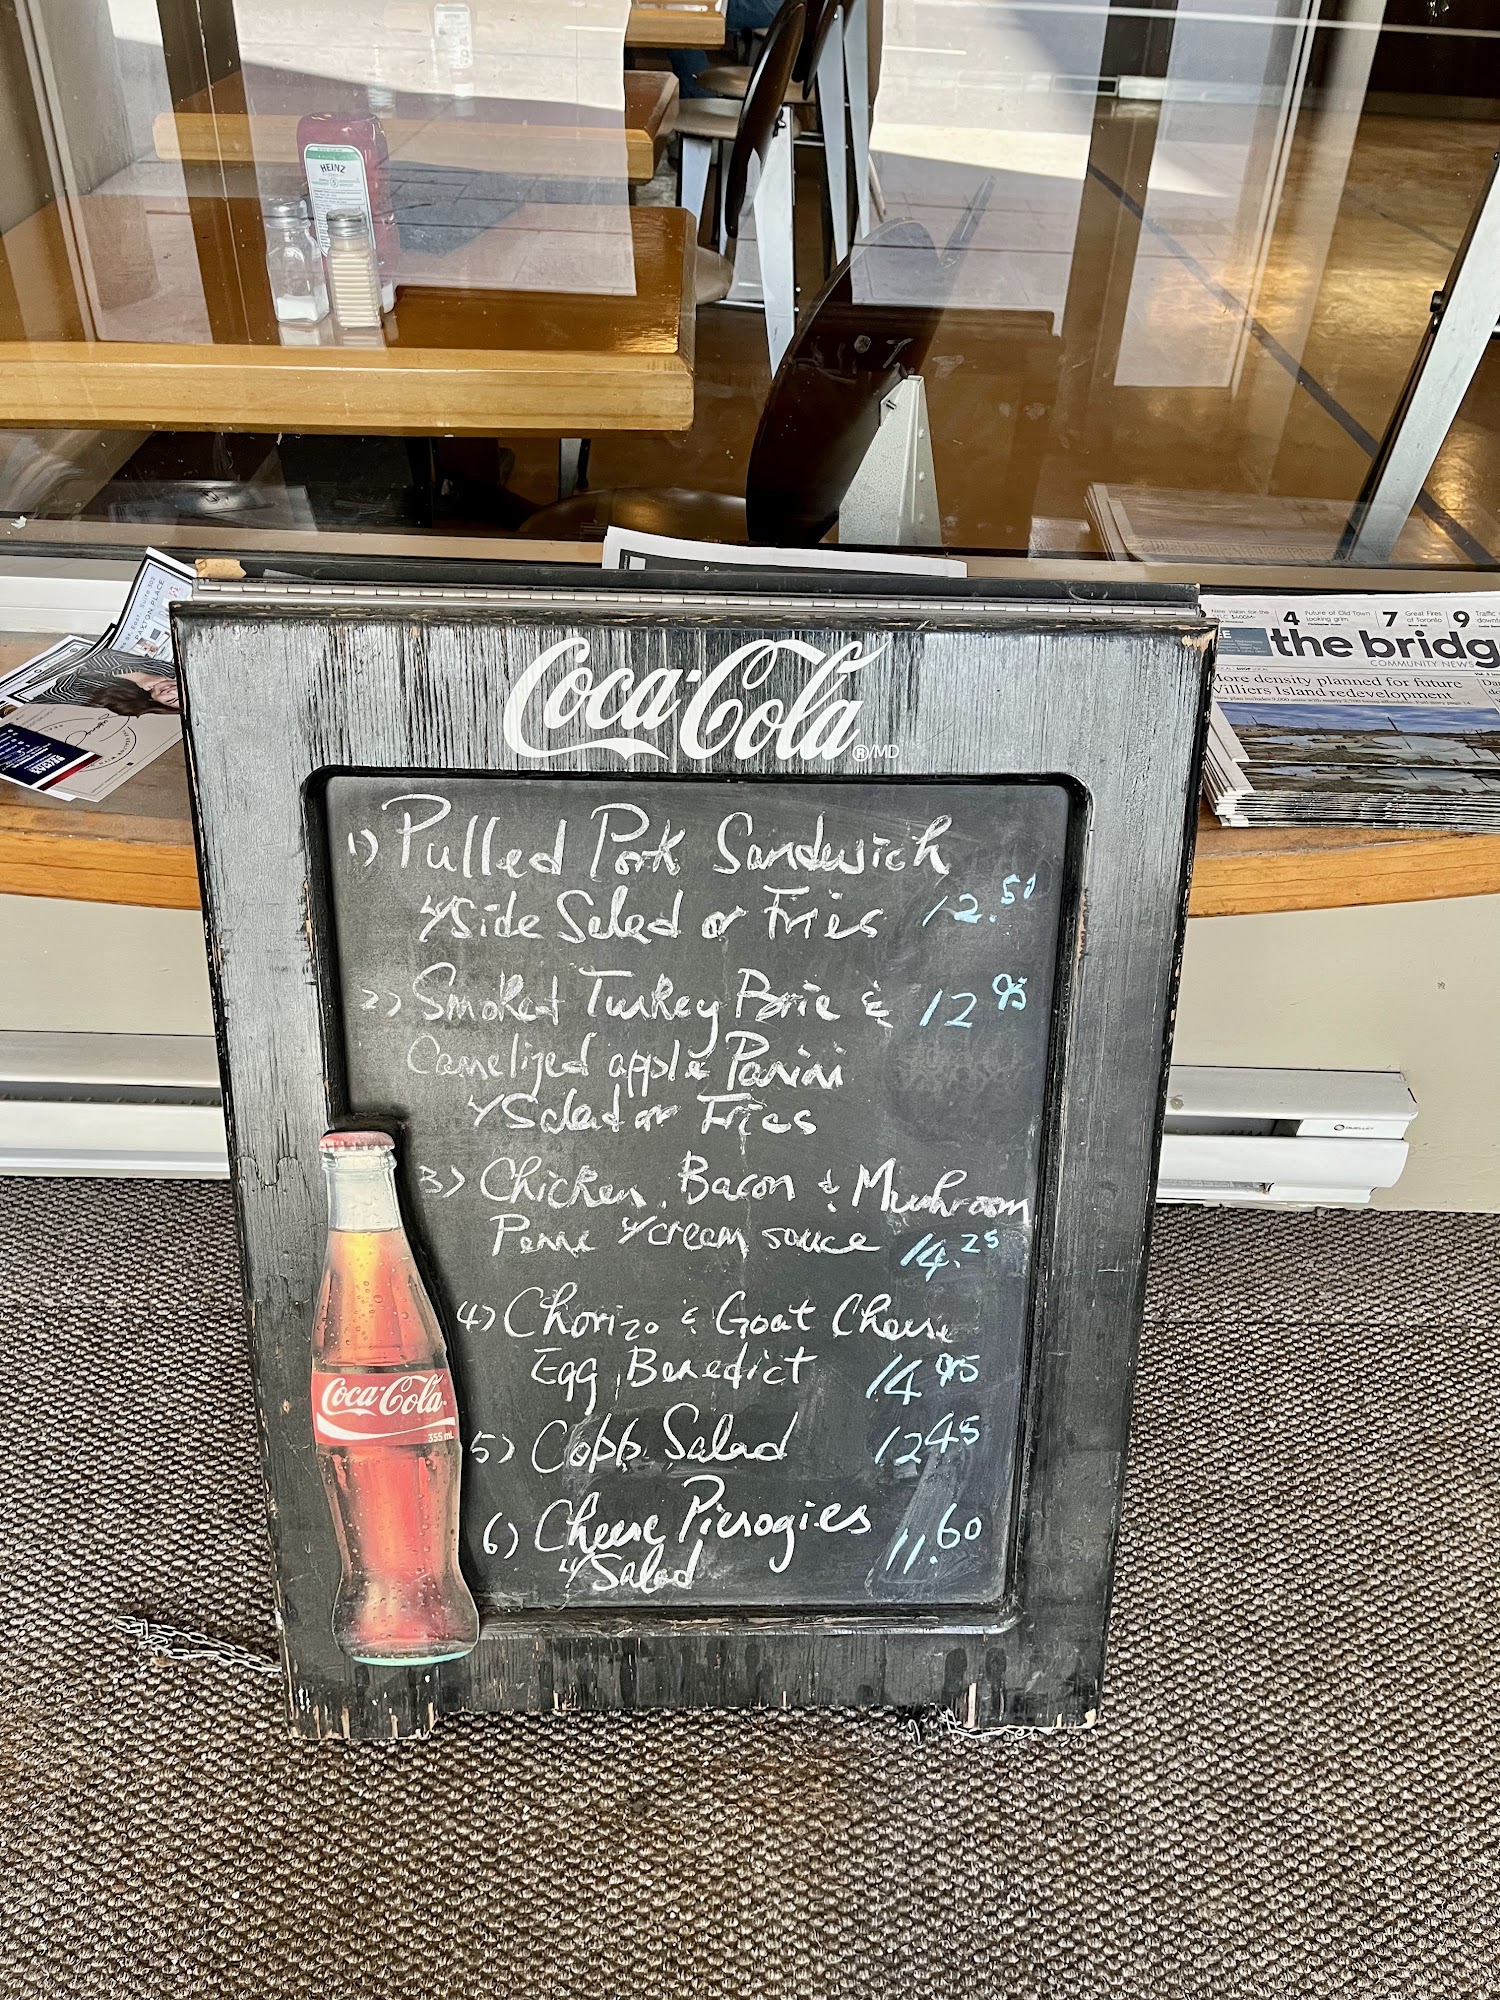 HEINZ
PAXTON PLACE
Coca-Cola
®/MD
4 Future of Old Town looking grim
7 Great Fires of Toronto
9 Traffic
the bridg
COMMUNITY NEWS
More density planned for future
Villiers Island redevelopment
1) Pulled Pork Sandwich
w/ Side Salad or Fries 12.50
2) Smoked Turkey Brie & 12 95
Camelized apple Panini
w/ Salad or Fries
3) Chicken, Bacon & Mushroom
Penne w/ cream sauce 14.25
4) Chorizo & Goat Cheese
Egg Benedict 14 95
5) Cobb Salad 12 45
6) Cheese Pierogies 11.60
w/ Salad
Coca-Cola
355 mL